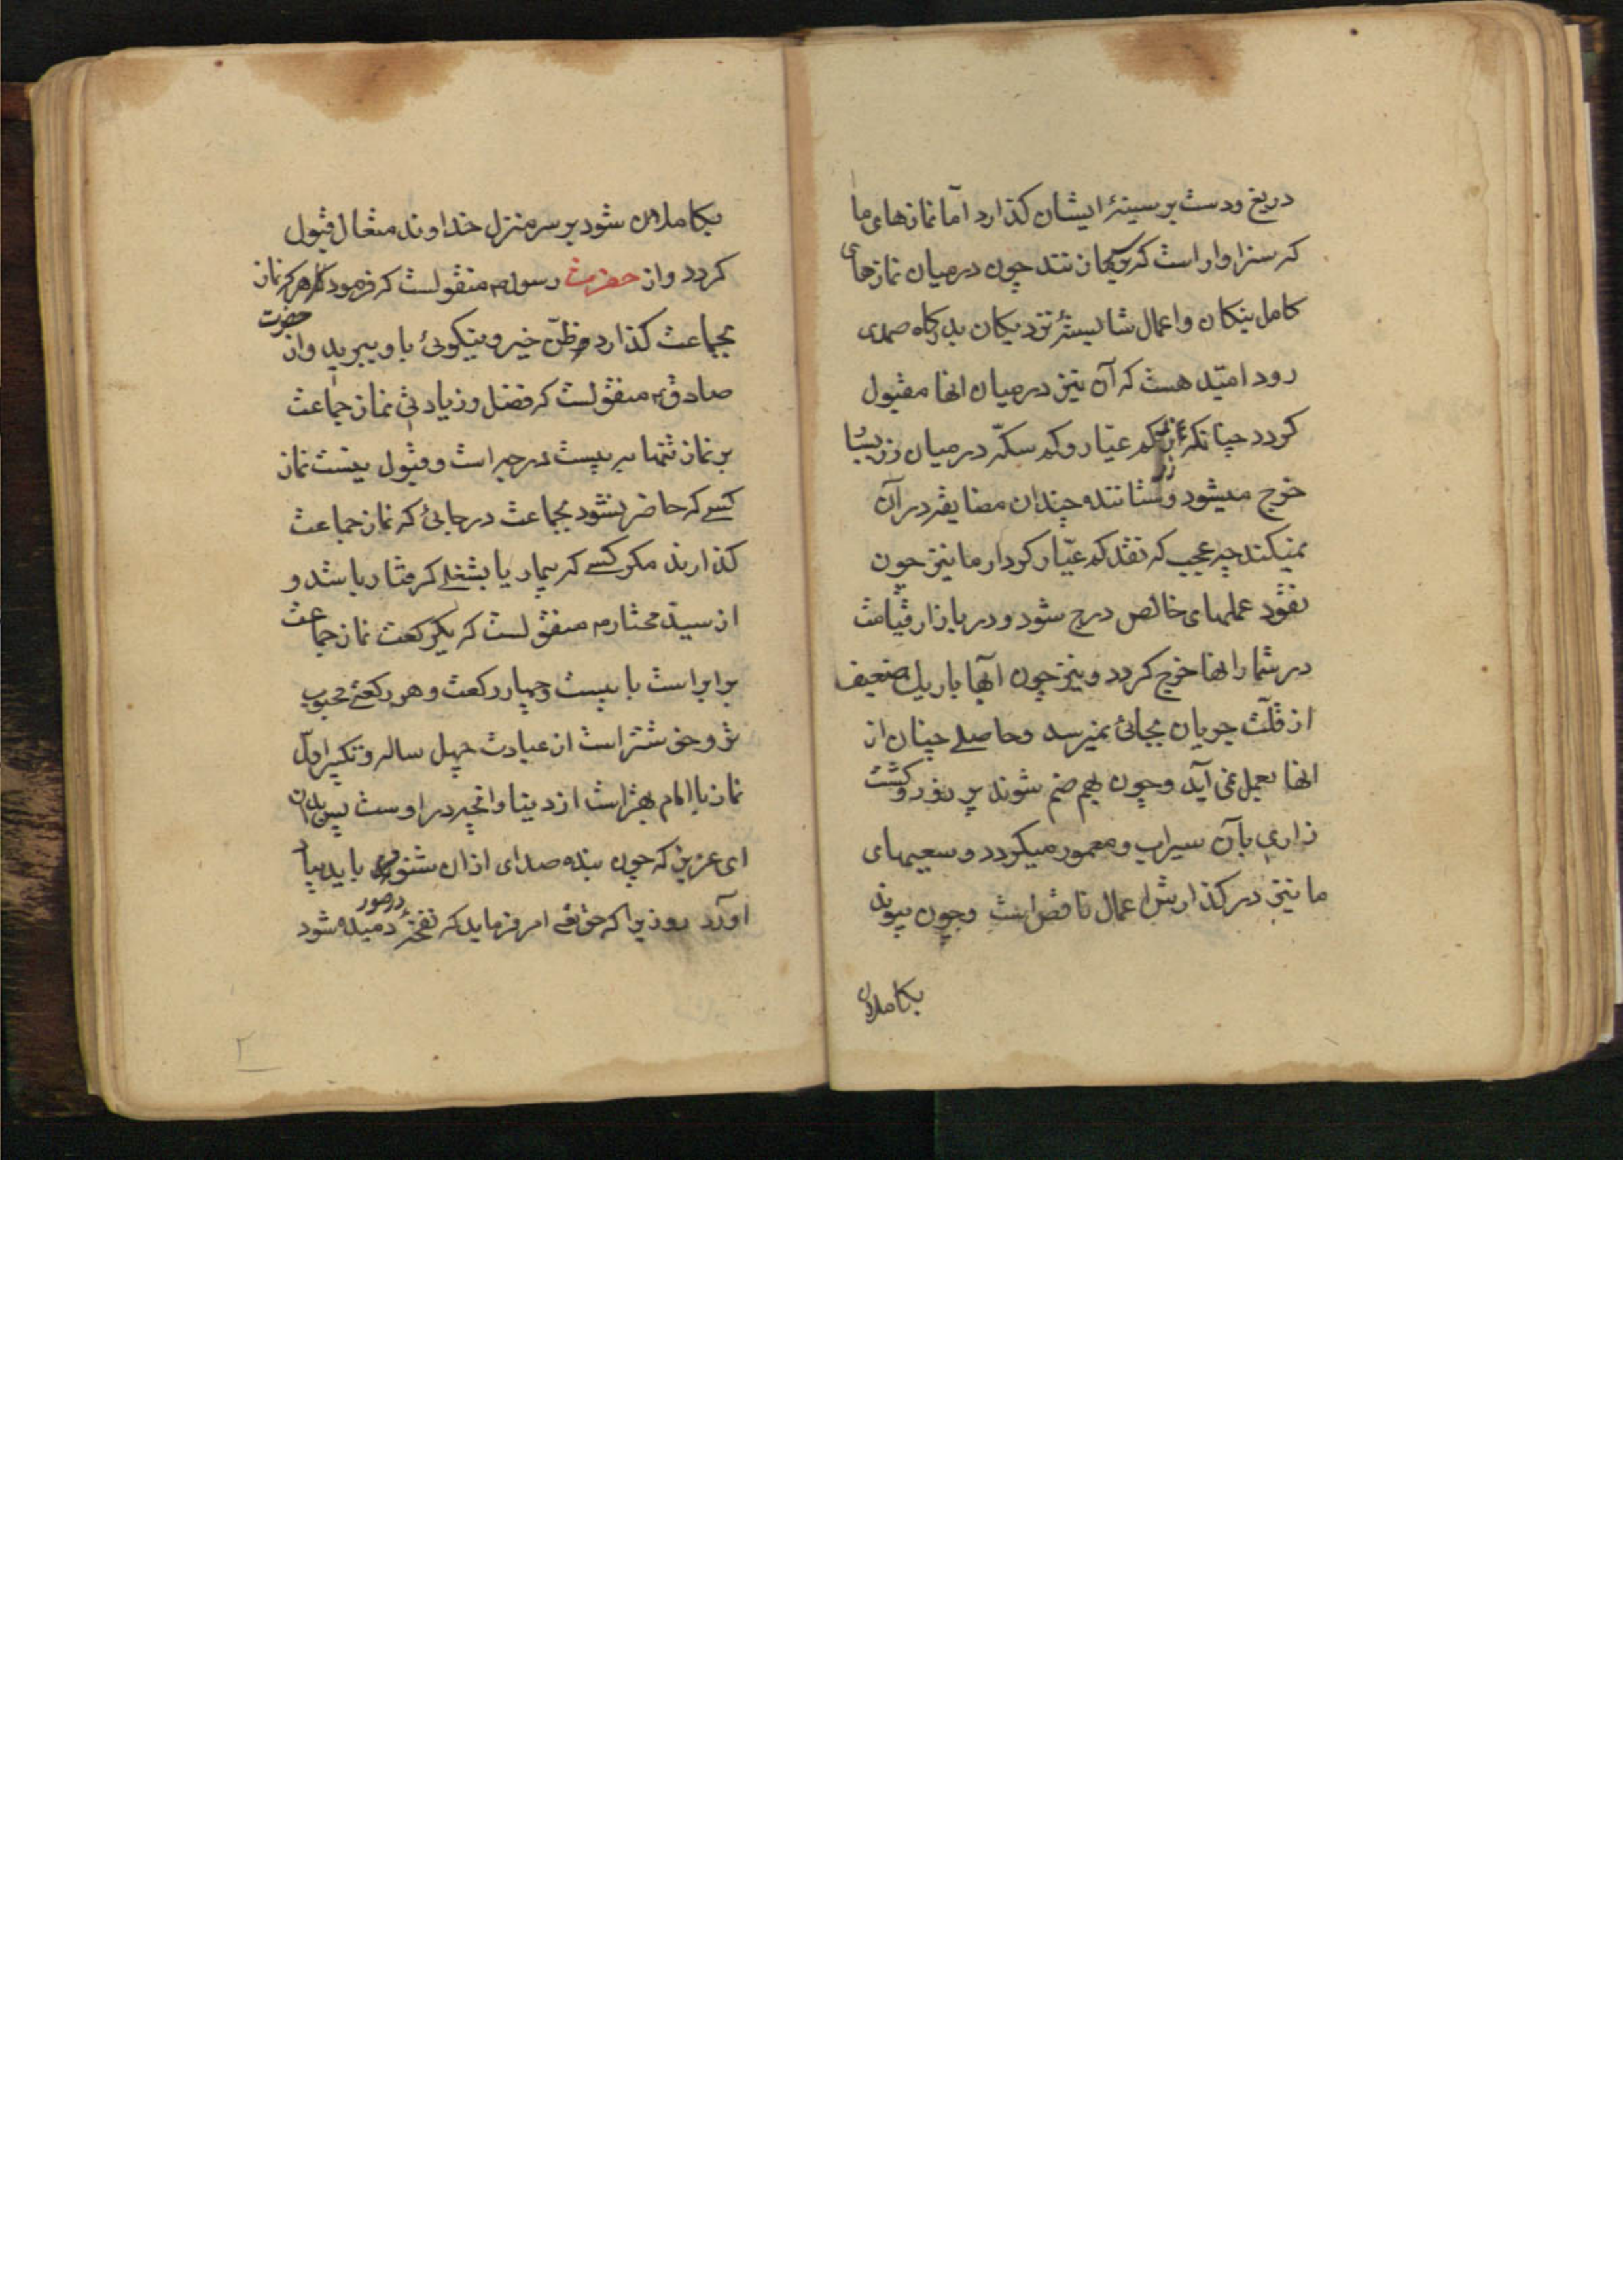 دریغ ودست بر سینهٔ ایشان کذارد اما نمازهای ما
که سزاوار است که بر ما زنند چون در میان نمازهای
کامل نیکان و اعمال شایستهٔ نزدیکان بدرکاه صمدی
رود امیّد هست که آن نیز در میان انها مقبول
کردد چنانکه زر کم عیار وکم سکّه در میان زر بسیا
خرج میشود وستاننده چندان مضایقه در آن
نمیکند چه عجب که نقد کم عیار کردار ما نیز چون
نقود عملهای خالص درج شود و در بازار قیامت
در شمار انها خرج کردد و نیز چون آبها باریک ضعیف
از قلّت جریان بجائی نمیرسد وحاصلی چنان از
انها بعمل نمی آید وچون بهم ضم شوند پر زور وکشت
زاری بآن سیراب و معمور میکردد و سعیهای
ما نیز در کذارش اعمال ناقص است وچون پیوند
بکاملان
بکاملان شود بر سر منزل خداوند متعال قبول
کردد واز حضرت رسول م منقولست که فرمود که هرکه نماز
بجماعت کذارد ظنّ خیر و نیکوئی باو ببرید واز حضرت
صادق ع منقولست که فضل وزیادتی نماز جماعت
بر نماز تنها به بیست درجه است وقبول نیست نماز
کسے که حاضر نشود بجماعت در جائی که نماز جماعت
کذارند مکر کسے که بیمار یا بشغلے کرفتار باشد و
از سیّد مختار م منقولست که یکرکعت نماز جماعت
برابر است با بیست وچهار رکعت وهر رکعتے محبوب
تر و خوشتر است از عبادت چهل ساله و تکبیر اول
نماز با امام بهتر است از دنیا وانچه در اوست پس بدان
ای عزیز که چون بنده صدای اذان شنود باید بیاد
اورد روزیرا که حق تعے امر فرماید که نفخهٔ در صور دمیده شود
۲